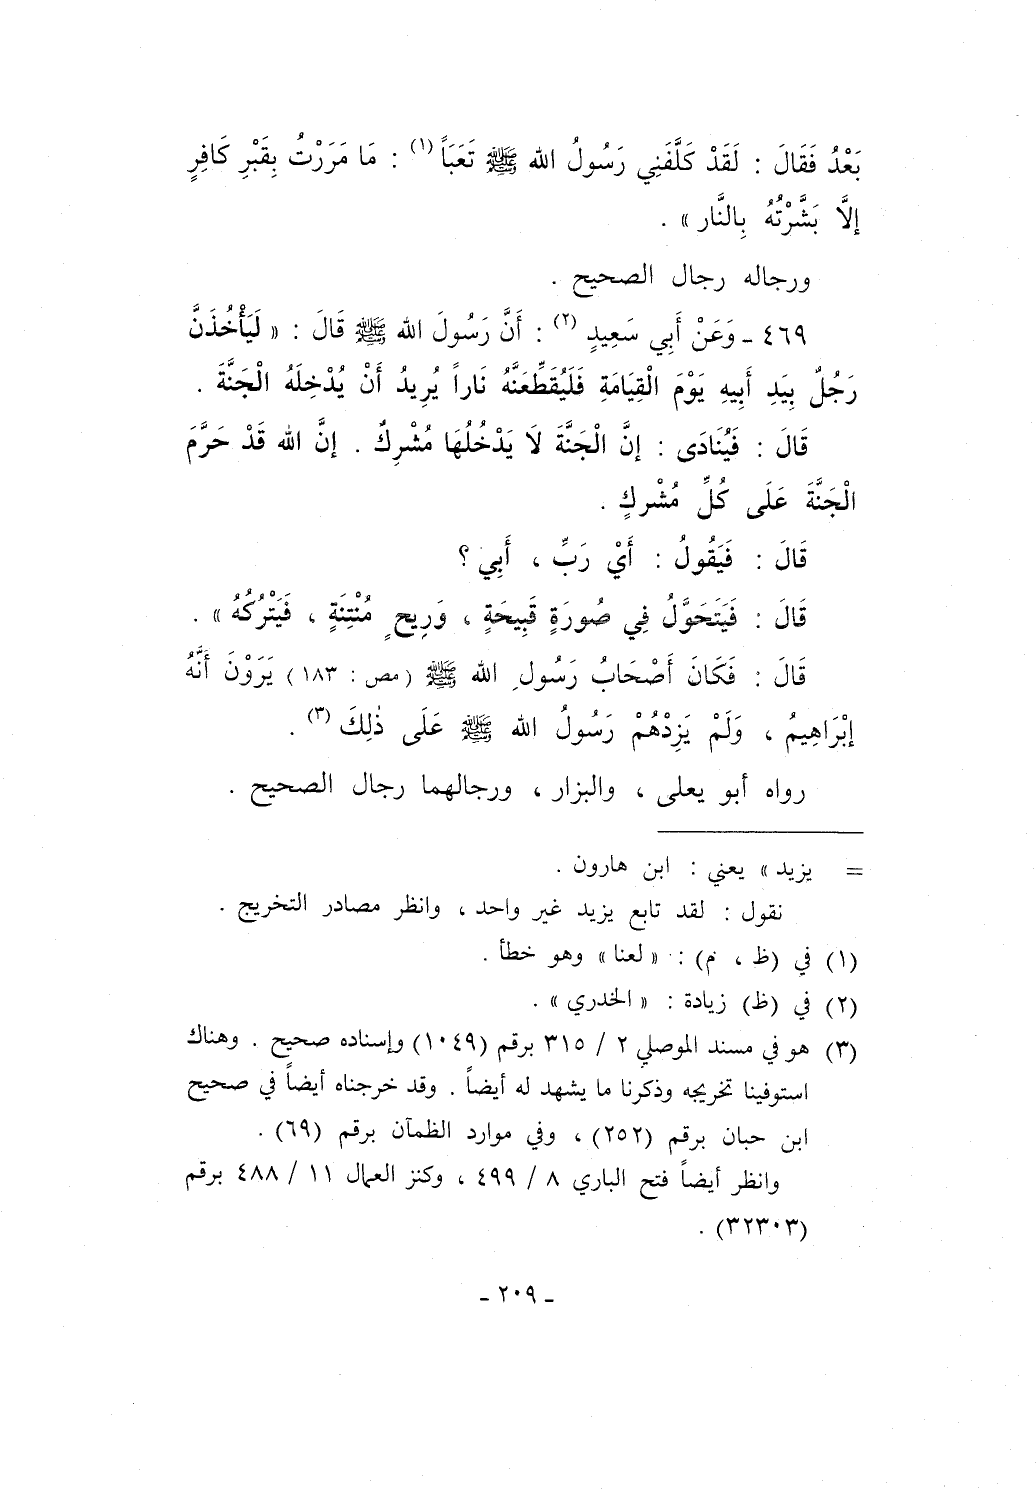 بَعْدُ فَقَالَ : لَقَدْ كَلَّفَنِي رَسُولُ الله ﷺ تَعَبَاً (١) : مَا مَرَرْتُ بِقَبْرِ كَافِرٍ
إلاَّ بَشَّرْتُهُ بِالنَّار » .
ورجاله رجال الصحيح .
٤٦٩ ـ وَعَنْ أَبِي سَعِيدٍ (٢) : أَنَّ رَسُولَ الله ﷺ قَالَ : « لَيَأْخُذَنَّ
رَجُلٌ بِيَدِ أَبِيهِ يَوْمَ الْقِيَامَةِ فَلَيُقَطِّعَنَّهُ نَاراً يُرِيدُ أَنْ يُدْخِلَهُ الْجَنَّةَ .
قَالَ : فَيُنَادَى : إنَّ الْجَنَّةَ لاَ يَدْخُلُهَا مُشْرِكٌ . إنَّ الله قَدْ حَرَّمَ
الْجَنَّةَ عَلَى كُلِّ مُشْركٍ .
قَالَ : فَيَقُولُ : أَيْ رَبِّ ، أَبِي ؟
قَالَ : فَيَتَحَوَّلُ فِي صُورَةٍ قَبِيحَةٍ ، وَرِيحٍ مُنْتِنَةٍ ، فَيَتْرُكُهُ » .
قَالَ : فَكَانَ أَصْحَابُ رَسُولِ الله ﷺ ( مص : ١٨٣ ) يَرَوْنَ أَنَّهُ
إبْرَاهِيمُ ، وَلَمْ يَزِدْهُمْ رَسُولُ الله ﷺ عَلَى ذٰلِكَ (٣) .
رواه أبو يعلى ، والبزار ، ورجالهما رجال الصحيح .
= يزيد » يعني : ابن هارون .
نقول : لقد تابع يزيد غير واحد ، وانظر مصادر التخريج .
(١) في (ظ ، م) : « لعنا » وهو خطأ .
(٢) في (ظ) زيادة : « الخدري » .
(٣) هو في مسند الموصلي ٢ / ٣١٥ برقم (١٠٤٩) وإسناده صحيح . وهناك
استوفينا تخريجه وذكرنا ما يشهد له أيضاً . وقد خرجناه أيضاً في صحيح
ابن حبان برقم (٢٥٢) ، وفي موارد الظمآن برقم (٦٩) .
وانظر أيضاً فتح الباري ٨ / ٤٩٩ ، وكنز العمال ١١ / ٤٨٨ برقم
(٣٢٣٠٣) .
ـ ٢٠٩ ـ